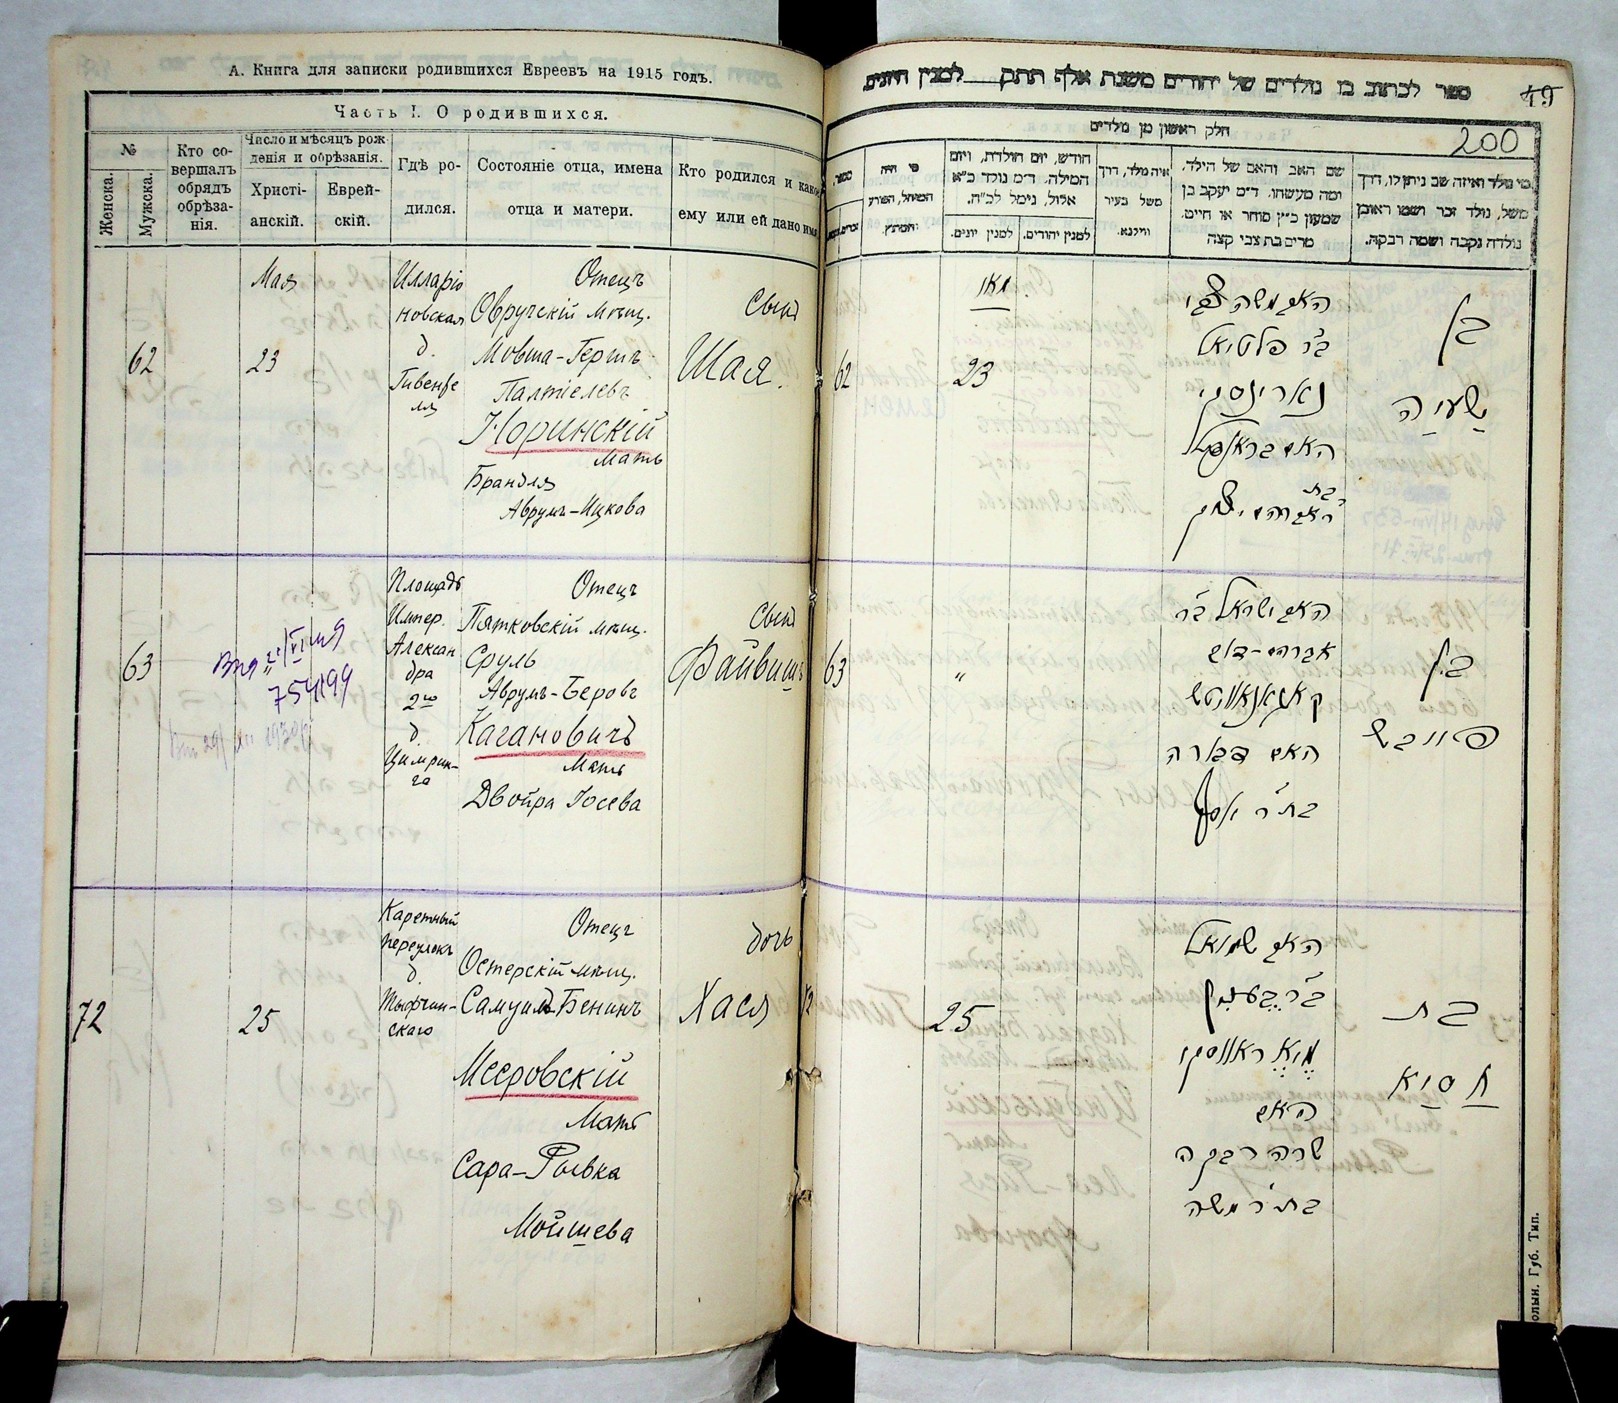 А. Книга для записки родившихся Евреевъ на 1915 годъ.
Часть I. О родившихся.
№
Женска.
Мужска.
Кто со-
вершалъ
обрядъ
обрѣза-
нія.
Число и мѣсяцъ рож
денія и обрѣзанія.
Христі-
анскій.
Еврей-
скій.
Гдѣ ро-
дился.
Состояніе отца, имена
отца и матери.
Кто родился и како
ему или ей дано имя
62
Мая
23
Илларіо
новская
д.
Гивенфе
ля
Отецъ
Овручскій мѣщ.
Мовша-Гершъ
Палтіелевъ
Норинскій
Мать
Брандля
Аврумъ-Ицкова
Сынъ
Шая.
63
754199
Площадь
Импер.
Алексан
дра
2го
д.
Цимрин-
га
Отецъ
Пятковскій мѣщ.
Сруль
Аврумъ-Беровъ
Кагановичъ
Мать
Двойра Іосева
Сынъ
Файвишъ
72
25
Каретный
переулокъ
д.
скаго
Отецъ
Остерскій мѣщ.
Самуилъ Бенинъ
Мееровскій
Мать
Сара-Ривка
Мойшева
дочь
Хася
ספר לכתוב בו נולדים של יהודים משנת אלף תתק לטנין היונים
49
200
חלק ראשון מן נולדים
ספר.
מי היה
המוהל, הפורע
והמוצץ.
חודש, יום הולדת, ויום
המילה. ד״מ נולד כ״א
אלול, נימל לכ״ח.
למנין יונים.
למנין יהודים.
איה נולד, דרך
משל בעיר
ווילנא.
שם האב והאם של הילד.
ומה מעשהו. ד״מ יעקב בן
שמעון כ״ץ סוחר או חיים.
מרים בת צבי קצה
מי נולד ואיזה שם ניתן לו, דרך
משל, נולד זכר ושמו ראובן
נולדה נקבה ושמה רבקה.
62
מאי
23
האב משה צבי
ב״ר פלטיאל
נארינסקי
האם בראנדיל
בת
ר׳ אברהם יצחק
בן
ישעיה
63
"
האב ישראל ב״ר
אברהם-דוב
קאגאנאוויטש
האם דבורה
בת ר׳ יוסף
בן
פייביש
72
25
האב שמואל
מייאראווסקי
האם
שרה רבקה
בת ר׳ משה
בת
חסיא
олын. Губ. Тип.